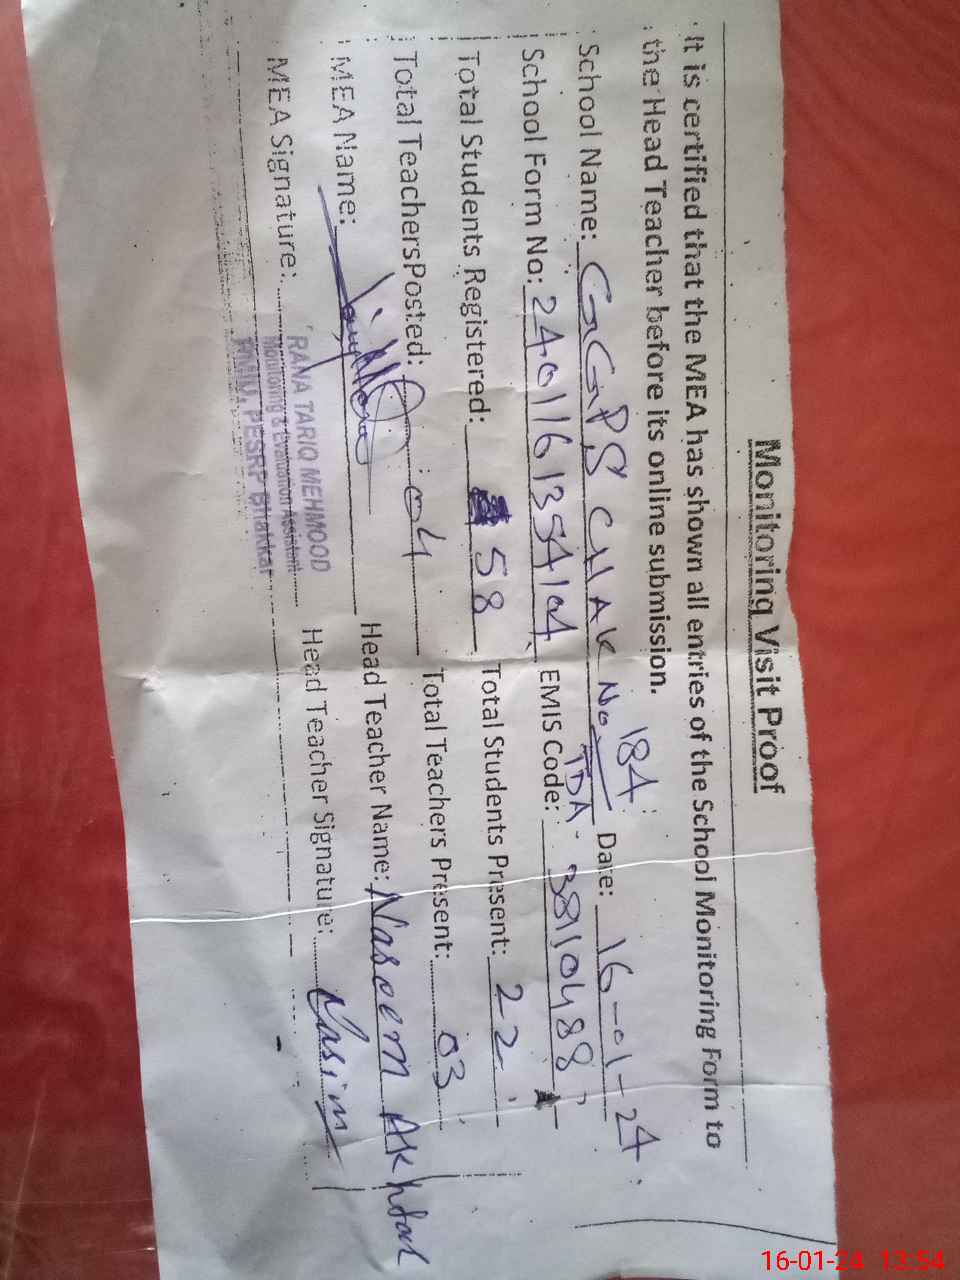 Monitoring Visit Proof
It is certified that the MEA has shown all entries of the School Monitoring Form to
the Head Teacher before its online submission.
School Name: GGPS CHAK No 184 TDA Date: 16-01-24
School Form No: 2401161354104 EMIS Code: 38110488
Total Students Registered: 58 Total Students Present: 22
Total TeachersPosted: 04 Total Teachers Present: 03
MEA Name: Head Teacher Name: Naseem Akhtar
MEA Signature: Head Teacher Signature: Nasim
RANA TARIQ MEHMOOD
Monitoring & Evaluation Assistant
PMIU, PESRP Bhakkar
16-01-24 13:54